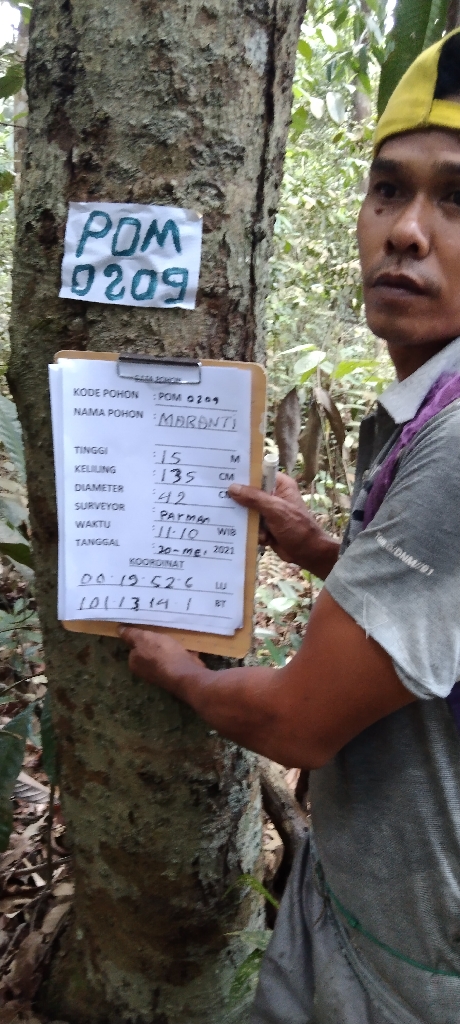 POM
0209
DATA POHON
KODE POHON : POM 0209
NAMA POHON : MARANTI
TINGGI : 15 M
KELILING : 135 CM
DIAMETER : 42 CM
SURVEYOR : PAYMAN
WAKTU : 11.10 WIB
TANGGAL : 20-MEI 2021
KOORDINAT
00.19.52.6 LU
101 13 141 BT